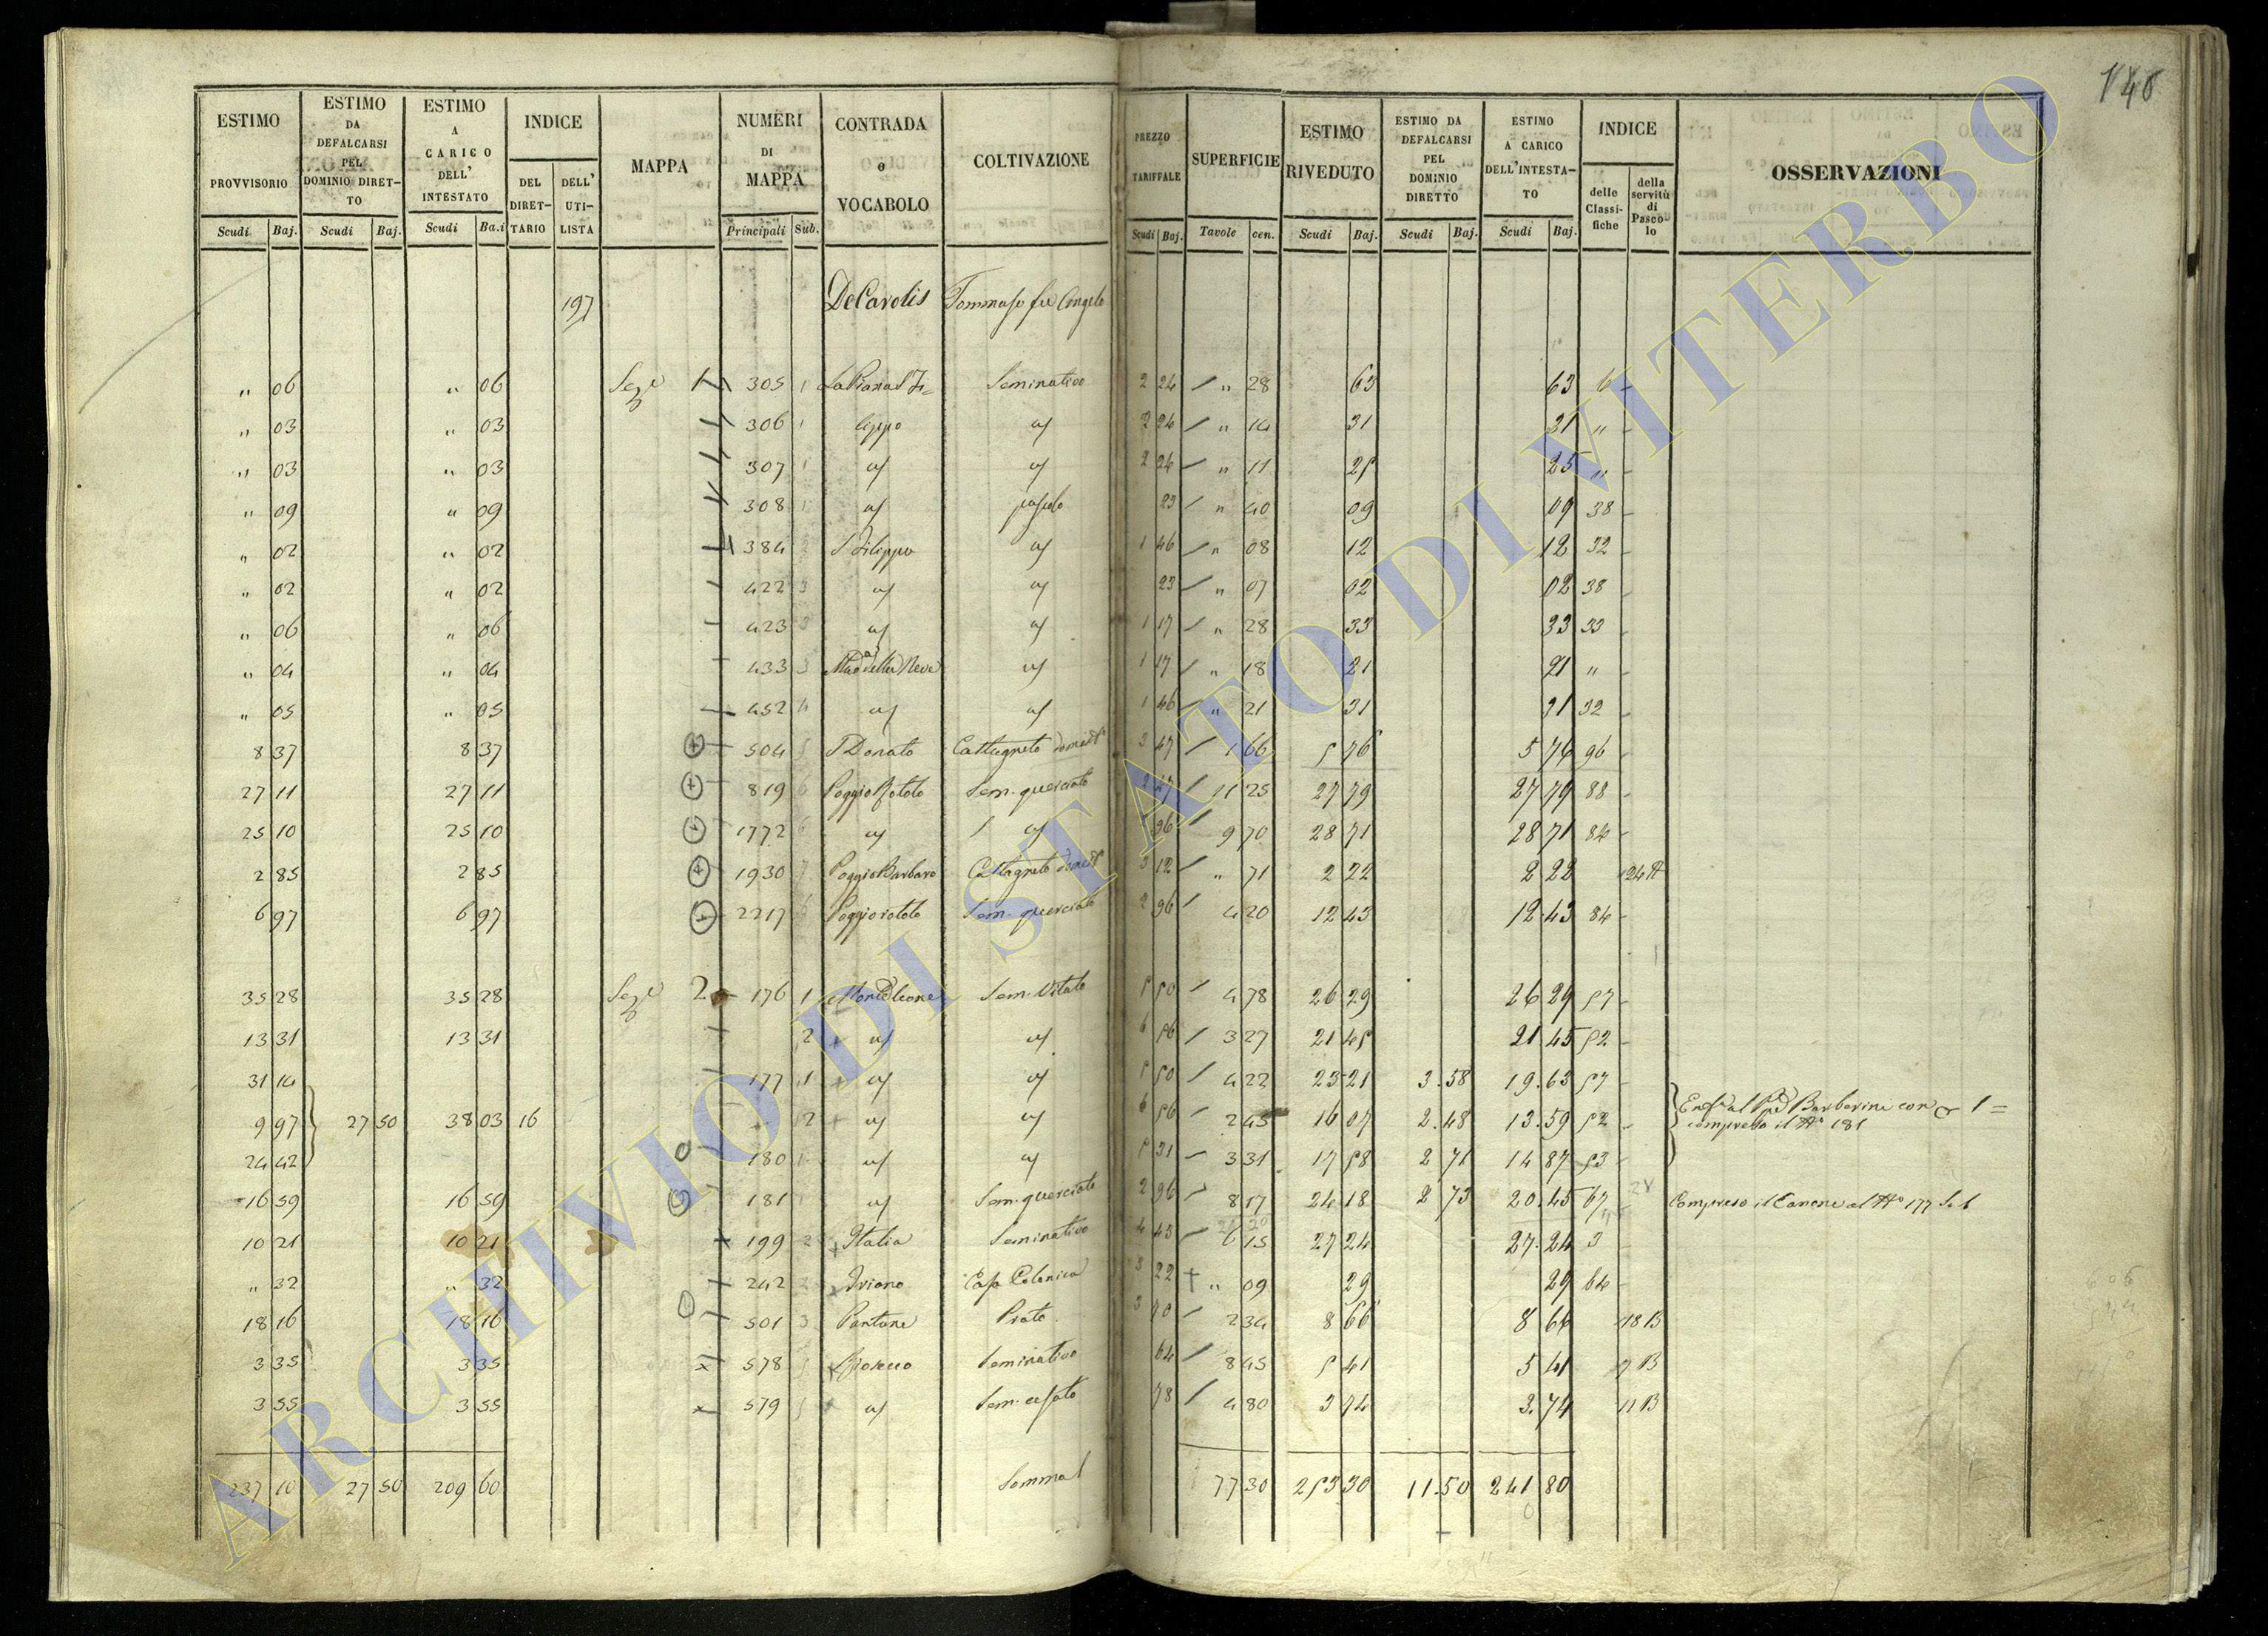 146
ESTIMO PROVVISORIO Scudi Baj. | ESTIMO DA DEFALCARSI PEL DOMINIO DIRETTO Scudi Baj. | ESTIMO A CARICO DELL' INTESTATO Scudi Ba.i | INDICE DEL DIRETTARIO DELL' UTILISTA | MAPPA | NUMERI DI MAPPA Principali Sub. | CONTRADA e VOCABOLO | COLTIVAZIONE | PREZZO TARIFFALE Scudi Baj. | SUPERFICIE Tavole cen. | ESTIMO RIVEDUTO Scudi Baj. | ESTIMO DA DEFALCARSI PEL DOMINIO DIRETTO Scudi Baj. | ESTIMO A CARICO DELL'INTESTATO Scudi Baj. | INDICE delle Classifiche della servitù di Pascolo | OSSERVAZIONI
197 DeCarolis Tommaso fu Angelo
" 06 " 06 Sez.e 1 305 1 La Piana S Fi= Seminativo 2 24 " 28 63 63
" 03 " 03 306 1 lippo a/ 2 24 " 14 31 31 "
" 03 " 03 307 1 a/ a/ 2 24 " 11 25 25 "
" 09 " 09 308 1 a/ pascolo 23 " 40 09 09 38
" 02 " 02 384 S Filippo a/ 1 46 " 08 12 12 32
" 02 " 02 422 3 a/ a/ 23 " 07 02 02 38
" 06 " 06 423 3 a/ a/ 1 17 " 28 33 33 33
" 04 " 04 433 3 della Neve a/ 1 17 " 18 21 21 "
" 05 " 05 452 4 a/ a/ 1 46 " 21 31 31 32
8 37 8 37 504 5 S Donato Castagneto domest 3 47 1 66 5 76 5 76 96
27 11 27 11 819 6 Poggio Rotolo Sem. querciato 2 47 11 25 27 79 27 79 88
25 10 25 10 1772 6 a/ a/ 2 96 9 70 28 71 28 71 84
2 85 2 85 1930 7 Poggio Barbaro Castagneto domest 3 12 " 71 2 22 2 22 124 A
6 97 6 97 2217 6 Poggio rotolo Sem. querciato 2 96 4 20 12 43 12 43 84
35 28 35 28 Sez.e 2 176 1 Monte Leone Sem. Vitato 5 50 4 78 26 29 26 29 57
13 31 13 31 2 a/ a/ 6 56 3 27 21 45 21 45 52
31 14 177 1 a/ a/ 5 50 4 22 23 21 3.58 19.63 57
9 97 27 50 38 03 16 2 a/ a/ 6 56 2 45 16 07 2.48 13.59 52 Barberini con 1=
compreso il N° 181
24 42 180 1 a/ a/ 5 31 3 31 17 58 2 71 14 87 53
16 59 16 59 181 a/ Sem. querciato 2 96 8 17 24 18 2 73 20.45 67 Compreso il Canone al N° 177 Sub 1
10 21 10 21 199 2 Italia Seminativo 4 43 6 15 27 24 27.24 3
" 32 " 32 242 2 Triano Casa Colonica 3 22 " 09 29 29 64
18 16 18 16 501 3 Pantane Prato 3 70 2 34 8 66 8 66 18 B
3 35 3 35 578 5 Seminativo 64 8 45 5 41 5 41 7 B
3 55 3 55 579 5 a/ Sem. cesato 78 4 80 3 74 3.74 11 B
237 10 27 50 209 60 Somma 77 30 253 30 11.50 241 80
ARCHIVIO DI STATO DI VITERBO